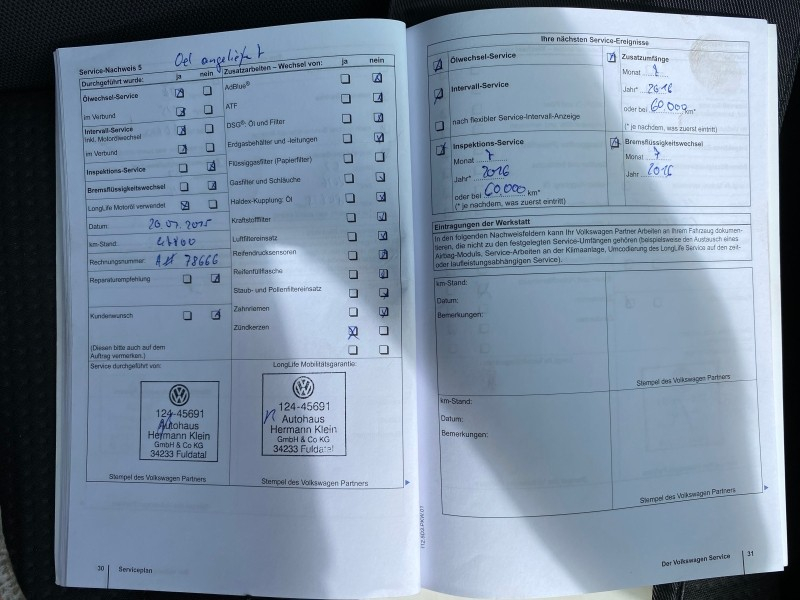 Oel angeliefert
Service-Nachweis 5
Durchgeführt wurde: ja nein
Ölwechsel-Service
im Verbund
Intervall-Service
inkl. Motorölwechsel
im Verbund
Inspektions-Service
Bremsflüssigkeitswechsel
LongLife Motoröl verwendet
Datum: 20.07.2015
km-Stand:
Rechnungsnummer: 78666
Reparaturempfehlung
Kundenwunsch
(Diesen bitte auch auf dem
Auftrag vermerken.)
Service durchgeführt von:
124-45691
Autohaus
Hermann Klein
GmbH & Co KG
34233 Fuldatal
Stempel des Volkswagen Partners
Zusatzarbeiten – Wechsel von: ja nein
AdBlue®
ATF
DSG®- Öl und Filter
Erdgasbehälter und -leitungen
Flüssiggasfilter (Papierfilter)
Gasfilter und Schläuche
Haldex-Kupplung: Öl
Kraftstofffilter
Luftfiltereinsatz
Reifendrucksensoren
Reifenfüllflasche
Staub- und Pollenfiltereinsatz
Zahnriemen
Zündkerzen
LongLife Mobilitätsgarantie:
124-45691
Autohaus
Hermann Klein
GmbH & Co KG
34233 Fuldatal
Stempel des Volkswagen Partners
30 Serviceplan
112.5D3.PKW.01
Ihre nächsten Service-Ereignisse
Ölwechsel-Service
Intervall-Service
nach flexibler Service-Intervall-Anzeige
Inspektions-Service
Monat 7
Jahr* 2016
oder bei 60.000 km*
(* je nachdem, was zuerst eintritt)
Zusatzumfänge
Monat
Jahr* 2016
oder bei 60.000 km*
(* je nachdem, was zuerst eintritt)
Bremsflüssigkeitswechsel
Monat 7
Jahr 2016
Eintragungen der Werkstatt
In den folgenden Nachweisfeldern kann Ihr Volkswagen Partner Arbeiten an Ihrem Fahrzeug dokumen-
tieren, die nicht zu den festgelegten Service-Umfängen gehören (beispielsweise den Austausch eines
Airbag-Moduls, Service-Arbeiten an der Klimaanlage, Umcodierung des LongLife Service auf den zeit-
oder laufleistungsabhängigen Service).
km-Stand:
Datum:
Bemerkungen:
Stempel des Volkswagen Partners
km-Stand:
Datum:
Bemerkungen:
Stempel des Volkswagen Partners
Der Volkswagen Service 31